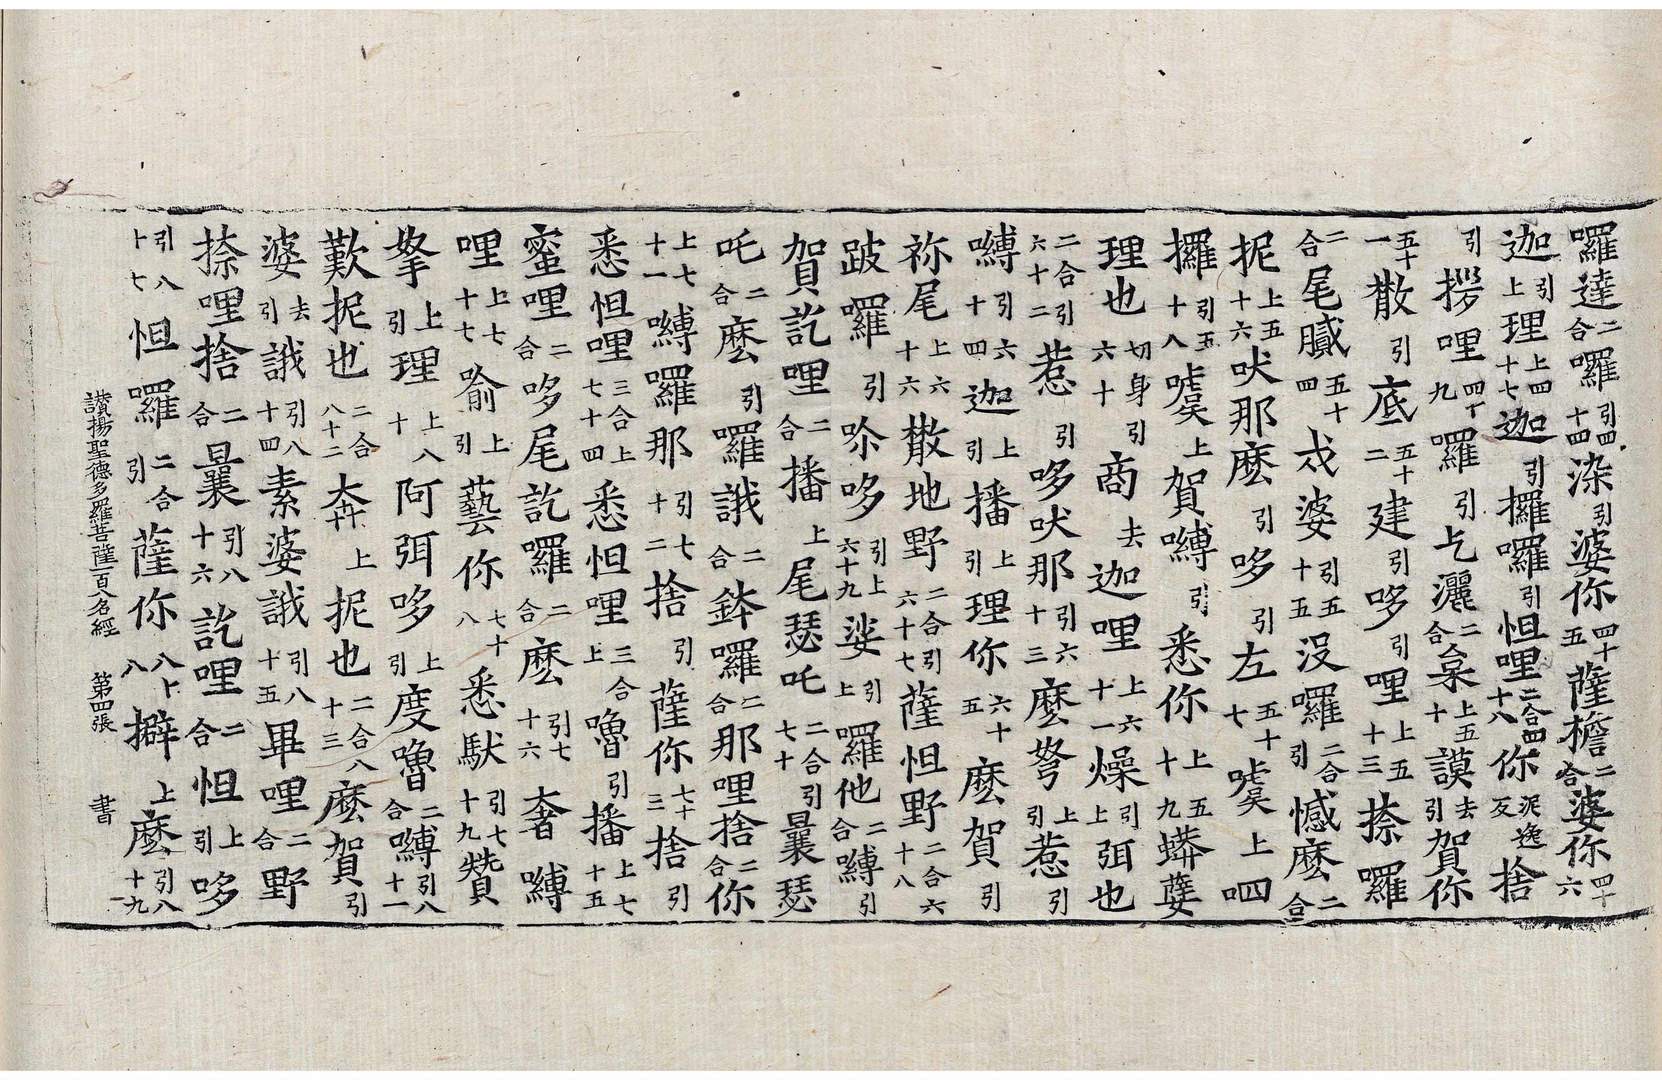 囉達二合囉引四十四染引婆你四十五薩檐二合婆你四十六
迦引上理上四十七迦引攞囉引怛哩二合四十八你泥逸反捨
引拶哩四十九囉引乞灑二合枲上五十謨去引賀你
五十一散引底五十二建引哆引哩上五十三捺囉
二合尾膩五十四戍婆引五十五沒囉二合引憾麽二合
抳上五十六吠那麽引哆引左五十七嘘上呬
攞引五十八嘘上賀嚩引悉你上五十九蟒蘖
理也切身引六十商去迦哩上六十一燥引上弭也
二合引六十二惹引哆吠那引六十三麽努上引惹引
嚩引六十四迦上引播上引理你六十五麽賀引
祢尾上六十六散地野二合引六十七薩怛野二合六十八
跛囉引尒哆引上六十九娑引上囉他二合嚩引
賀訖哩二合播上尾瑟吒二合引七十曩瑟
吒二合麽引囉誐二合鉢囉二合那哩捨二合你
上七十一嚩囉那引七十二捨引薩你七十三捨引
悉怛哩三合上七十四悉怛哩三合上嚕引播上七十五
蜜哩二合哆尾訖囉二合麽引七十六奢嚩
哩上七十七喻上引藝你七十八悉馱引七十九贊
拏上引理上八十阿弭哆上引度嚕二合嚩引八十一
歎抳也二合八十二奔上抳也二合八十三麽賀引
婆去引誐引八十四素婆誐引八十五畢哩二合野
捺哩捨二合曩引八十六訖哩二合怛上引哆
引八十七怛囉二合引薩你八十八擗上麽引八十九
讚揚聖德多羅菩薩一百八名經　第四張　書